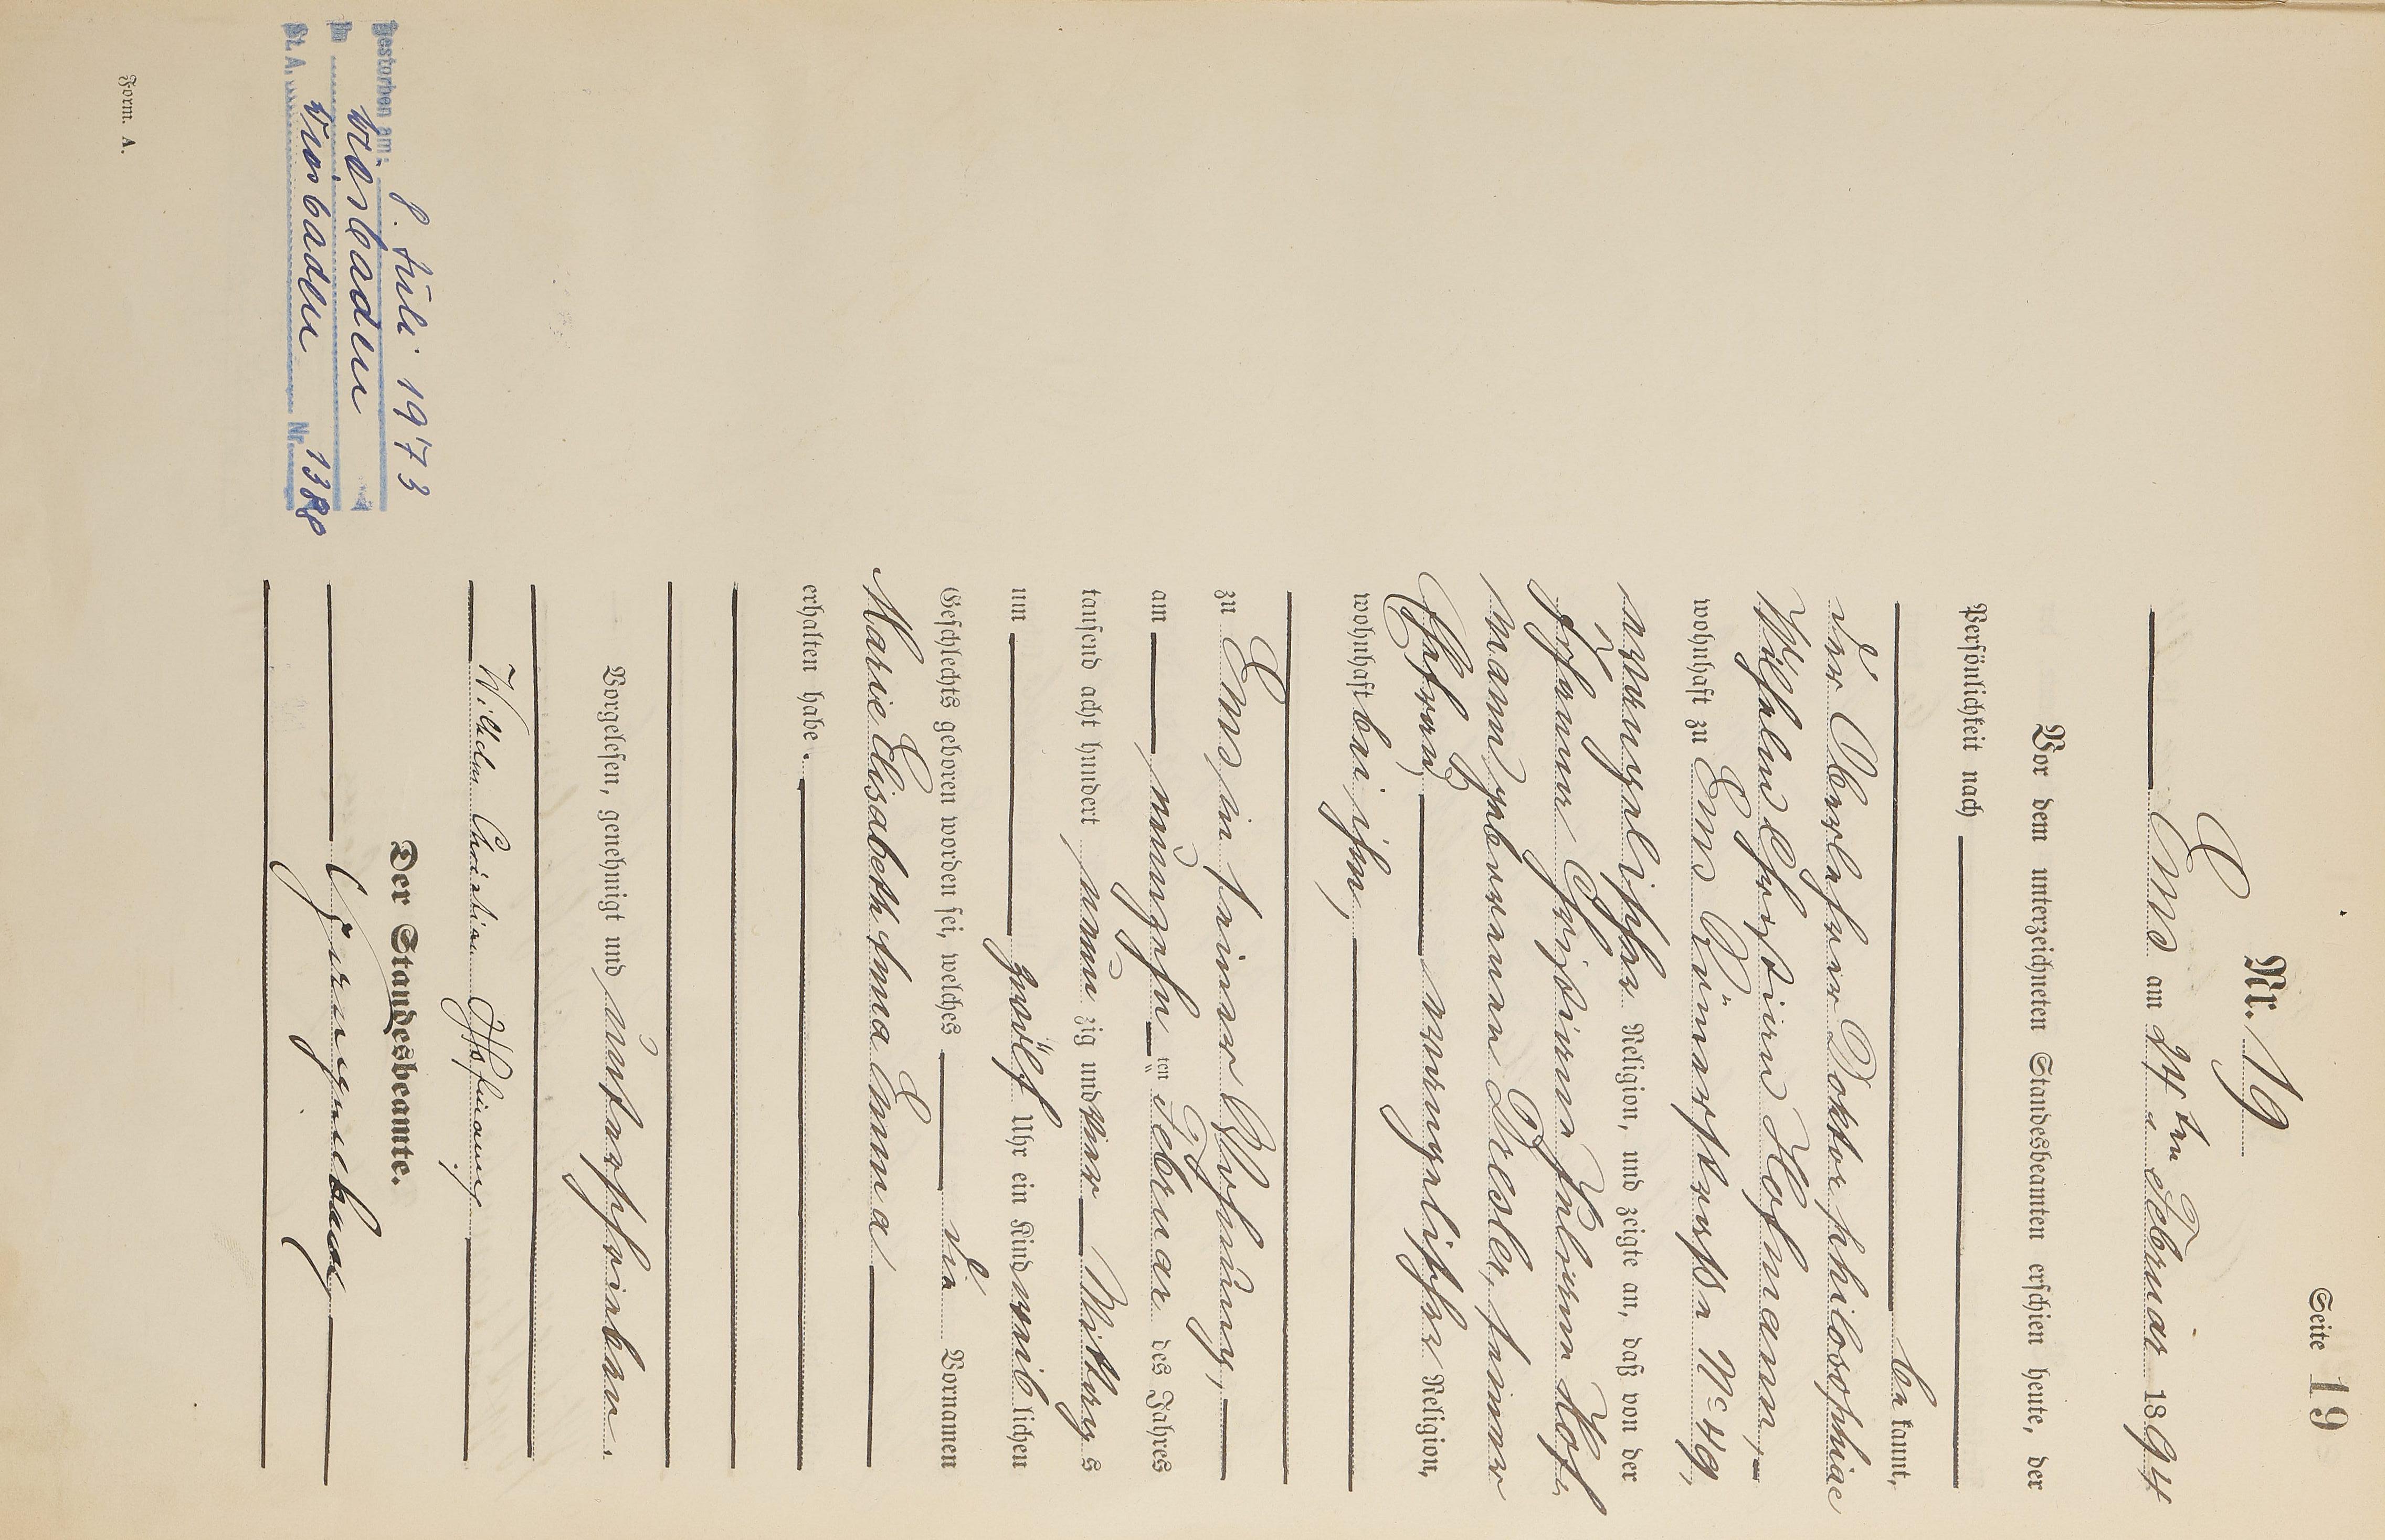 Seite 19
Nr. 19
Ems am 24ten Februar 1894
Vor dem unterzeichneten Standesbeamten erschien heute, der
Persönlichkeit nach
bekannt,
der Oberlehrer Doktor philosophiae
Wilhelm Christian Hofmann,
wohnhaft zu Ems Römerstraße No 49,
evangelischer Religion, und zeigte an, daß von der
Johanna Christiane Juliane Hof-
mann geborenen Dresler, seiner
Ehefrau, evangelischer Religion,
wohnhaft bei ihm,
zu Ems in seiner Wohnung,
am neunzehnten Februar des Jahres
tausend acht hundert neunzig und vier Mittags
um zwölf Uhr ein Kind weiblichen
Geschlechts geboren worden sei, welches die Vornamen
Marie Elisabeth Erna Emma
erhalten habe.
Vorgelesen, genehmigt und unterschrieben.
Wilhelm Christian Hofmann.
Der Standesbeamte.
Gestorben am: 8. Juli 1973
in Wiesbaden
St. A. Wiesbaden Nr. 1388
Form. A.